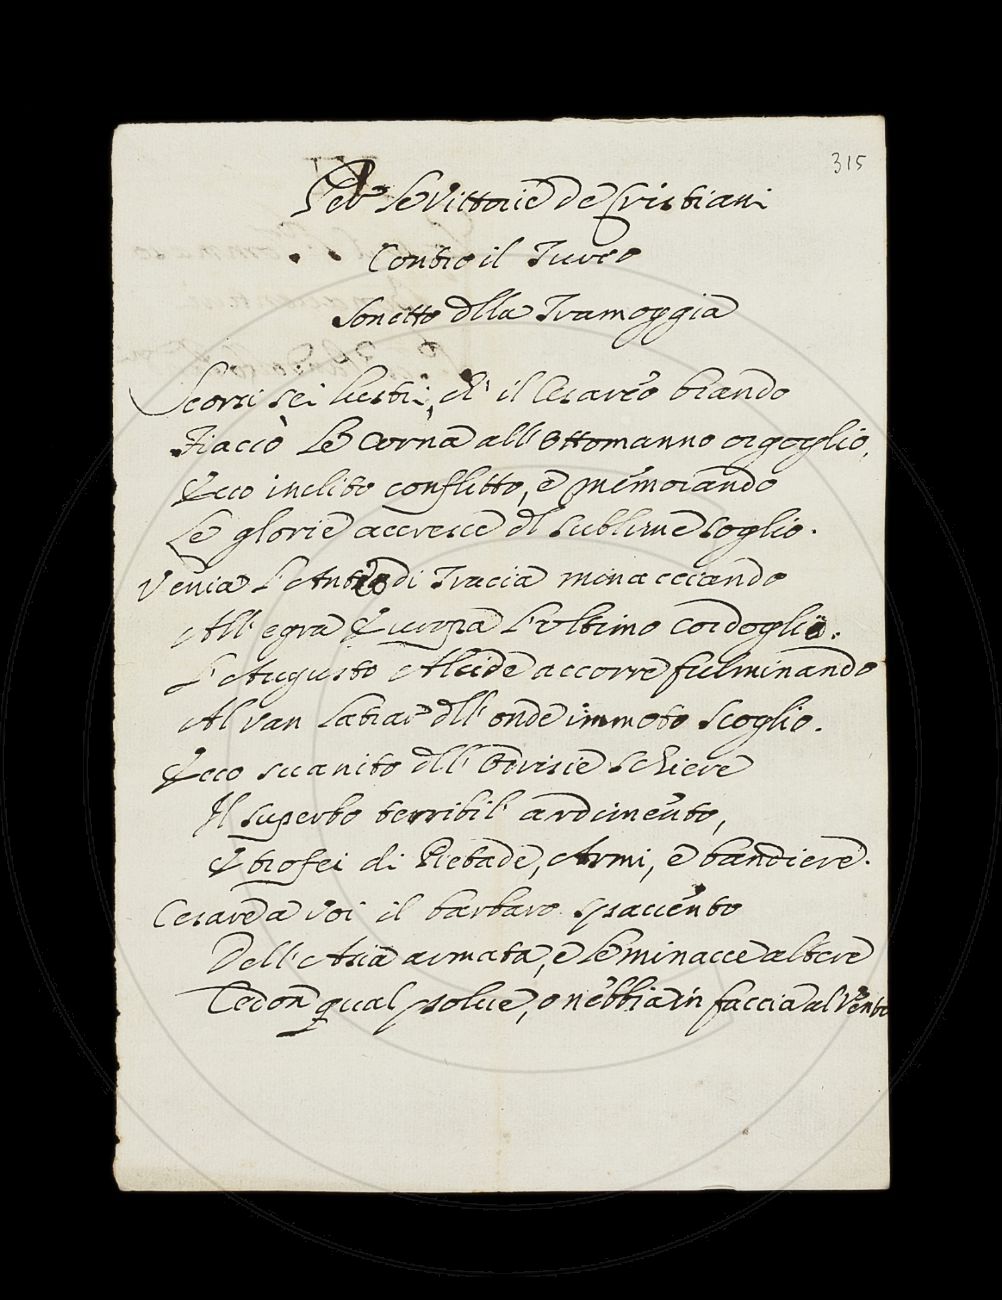 315
Per le Vittorie de Cristiani
Contro il Turco
Sonetto dlla Tramoggia
Scorsi sei lustri, ch' il Cesareo brando
Fiaccò Le Corna all' Ottomanno orgoglio,
Ecco inclito conflitto, e memorando
Le glorie accresce dl sublime soglio.
Venia L'Antro di Tracia minacciando
All' egra Europa L'ultimo Cordoglio.
L'Augusto Alcide accorre fulminando
Al van Latrar dll' onde immoto scoglio.
Ecco suanito dll' Odrisie schiere
Il superbo terribil' ardimento,
E trofei di Pietade, Armi, e bandiere.
Cesare a voi il barbaro spavento
Dell' Asia armata, e le minacce altere
Cedon qual polve, o nebbia in faccia al Vento